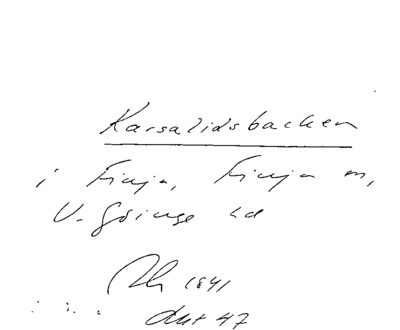 Karsalidsbacken
i Finja, Finja sn,
V. Göinge hd
Rh 1841
dut 47